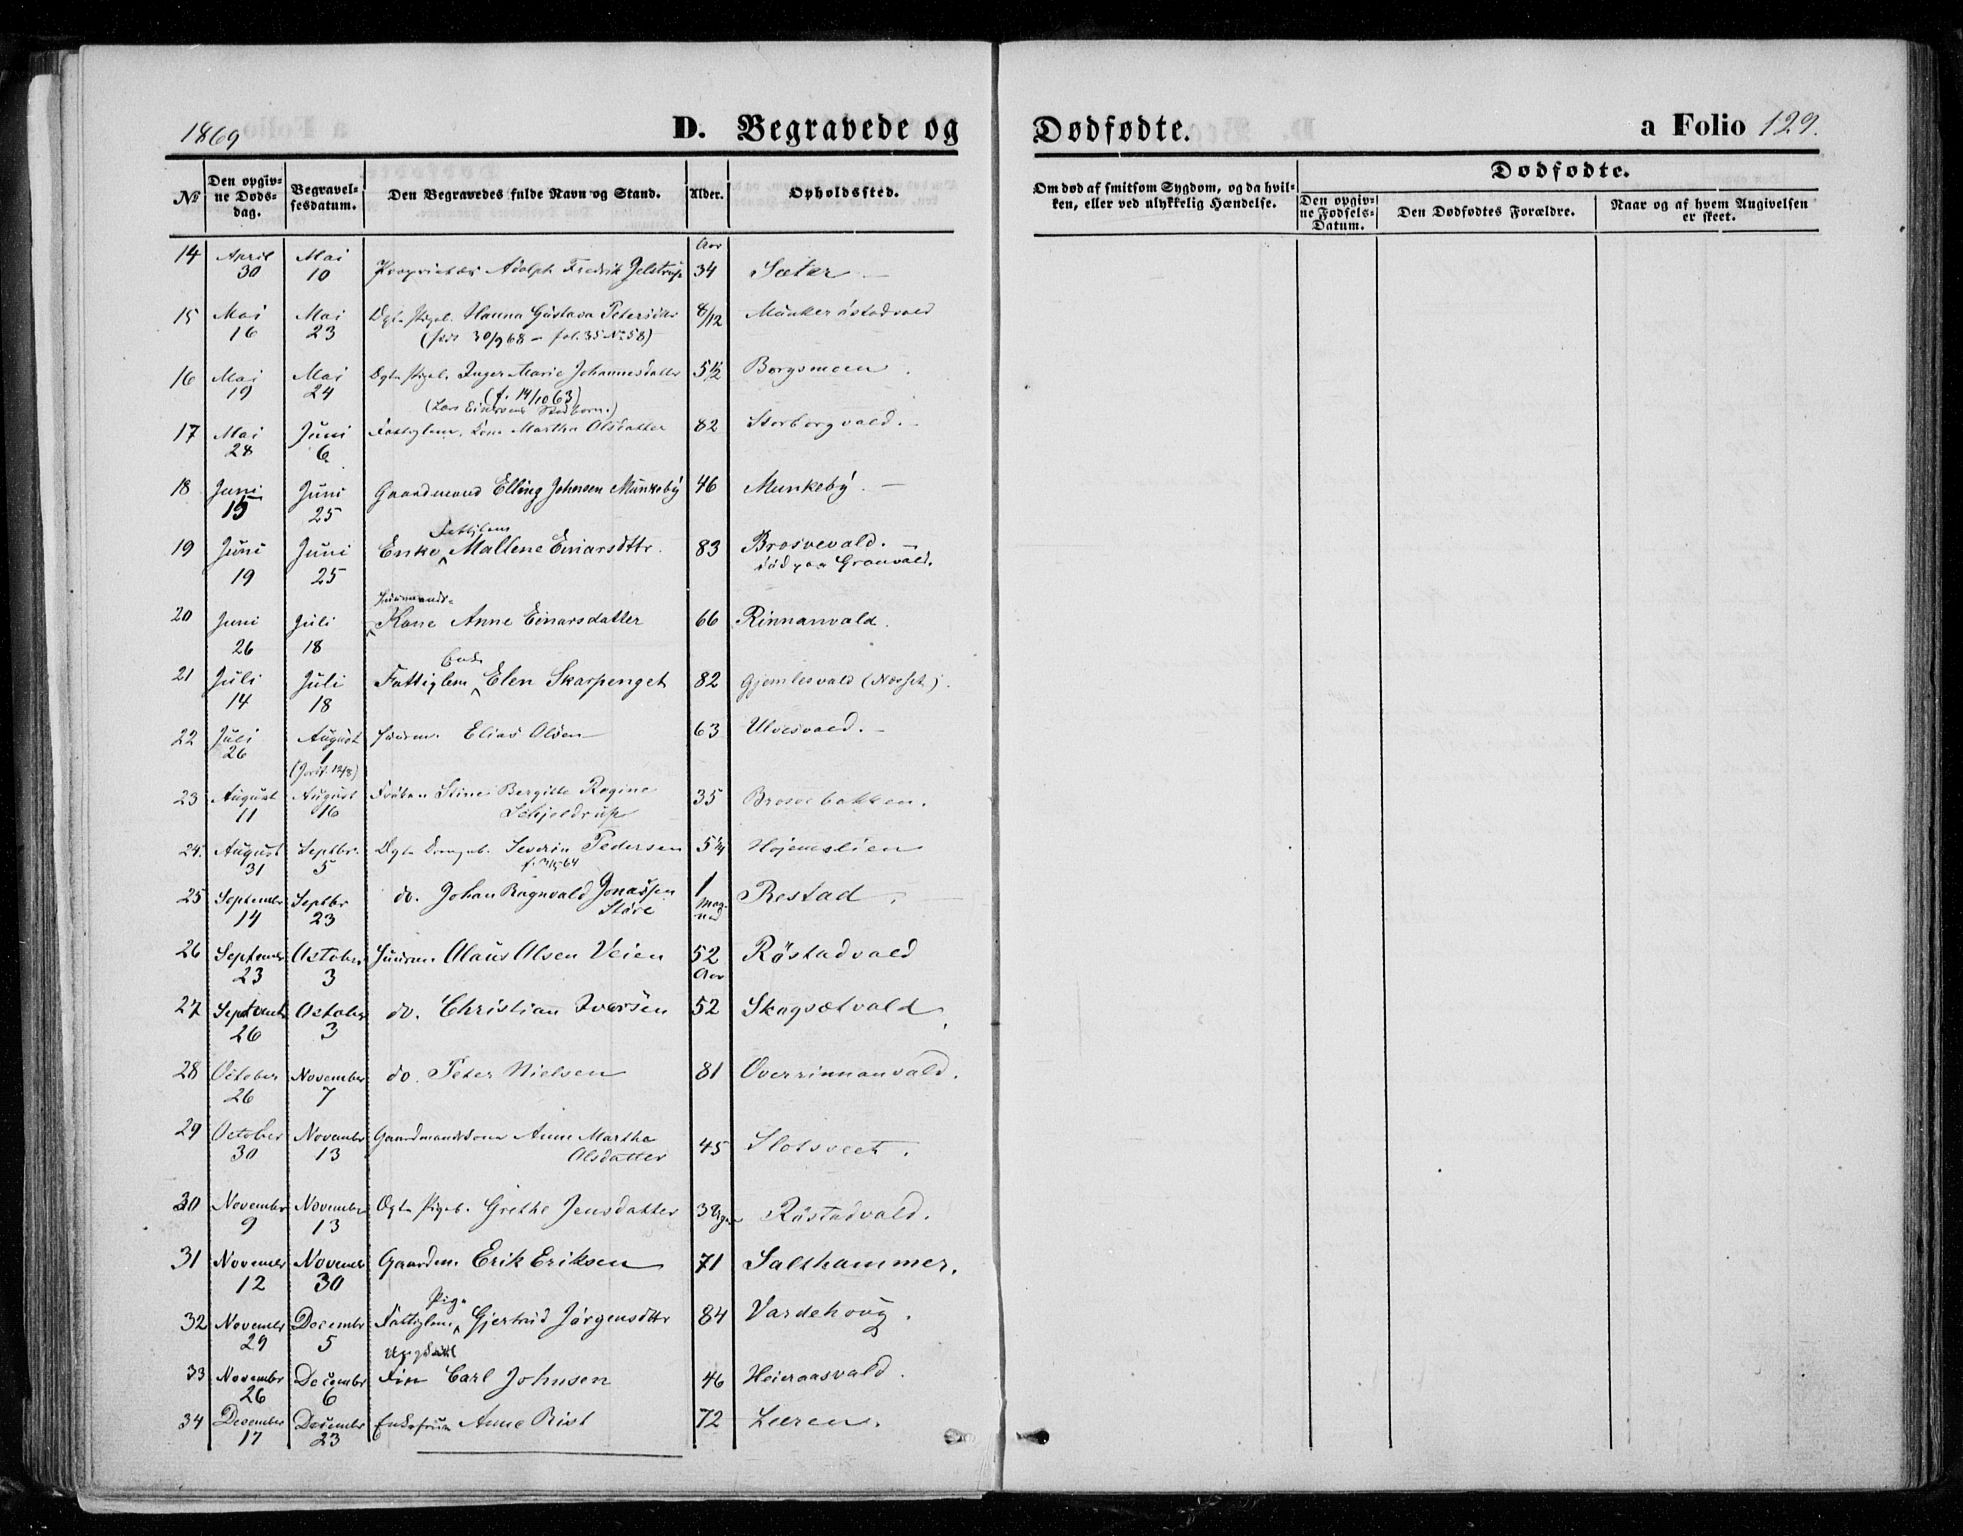 1869
D. Begravede og Dødfødte. a Folio 129.
No
Den opgivne Dødsdag.
Begravelsesdatum.
Den Begravedes fulde Navn og Stand.
Alder.
Opholdssted.
Om død af smitsom Sygdom, og da hvilken, eller ved ulykkelig Hændelse.
Dødfødte.
Den opgivne Fødsels-Datum.
Den Dødfødtes Forældre.
Naar og af hvem Angivelsen er skeet.
Aar
14 April 30 Mai 10 Proprietær Adolph Fredrik Jelstrup 34 Sæter
15 Mai 16 Mai 23 Hanna Gustava 8/12
(30/9 68 – fol. 35 No 58)
16 Mai 19 Mai 24 Inger Marie Johannesdatter 5½ Borgsmoen
(f. 14/10 63)
17 Mai 28 Juni 6 Fattiglem, Kone Martha Olsdatter 82 Storborgvald.
18 Juni 15 Juni 25 Gaardmand Elling Johnsen Munkeby 46 Munkeby.
19 Juni 19 Juni 25 Enke Fattiglem Mallene Einarsdttr. 83 Brosvevald.
død paa Granvald.
20 Juni 26 Juli 18 Huusmands- Kone Anne Einarsdatter 66 Rinnanvald.
21 Juli 14 Juli 18 Fattiglem Enke Elen Skarpenget 82 Gjemlesvald (Næsset).
22 Juli 26 August 1 Huusm. Elias Olsen 63 Ulvesvald.
(Jordf. 12/8)
23 August 11 August 16 Frøken Stine Bergitte Regine 35 Brosvebakken.
Schjeldrup
24. August 31 Septbr. 5 Ægte Drengeb. Severin Pedersen 5¼ Høiemslien
25 September 14 Septbr 23 do. Johan Ragnvald Jonassen 1 Maaned Restad
Støre
26 September 23 October 3 Huusm. Olaus Olsen Veien 52 Aar Røstadvald
27 September 26 October 3 do. Christian Iversen 52 Skogsætvald
28 October 26 November 7 do. Peter Nielsen 81 Overrinnanvald.
29 October 30 November 13 Gaardmandskone Anne Martha 45 Slotsveet.
Olsdatter
30 November 9 November 13 Ægte Pigeb. Grethe Jensdatter 3 Uger Røstadvald.
31 November 12 November 30 Gaardm. Erik Eriksen 71 Salthammer.
32 November 29 December 5 Fattiglem Pige Gjertrud Jørgensdttr 84 Vardehoug.
33 November 26 December 6 Fin Carl Johnsen 46 Heieraasvald.
34 December 17 December 23 Enkefrue Anne Rist 72 Leeren.